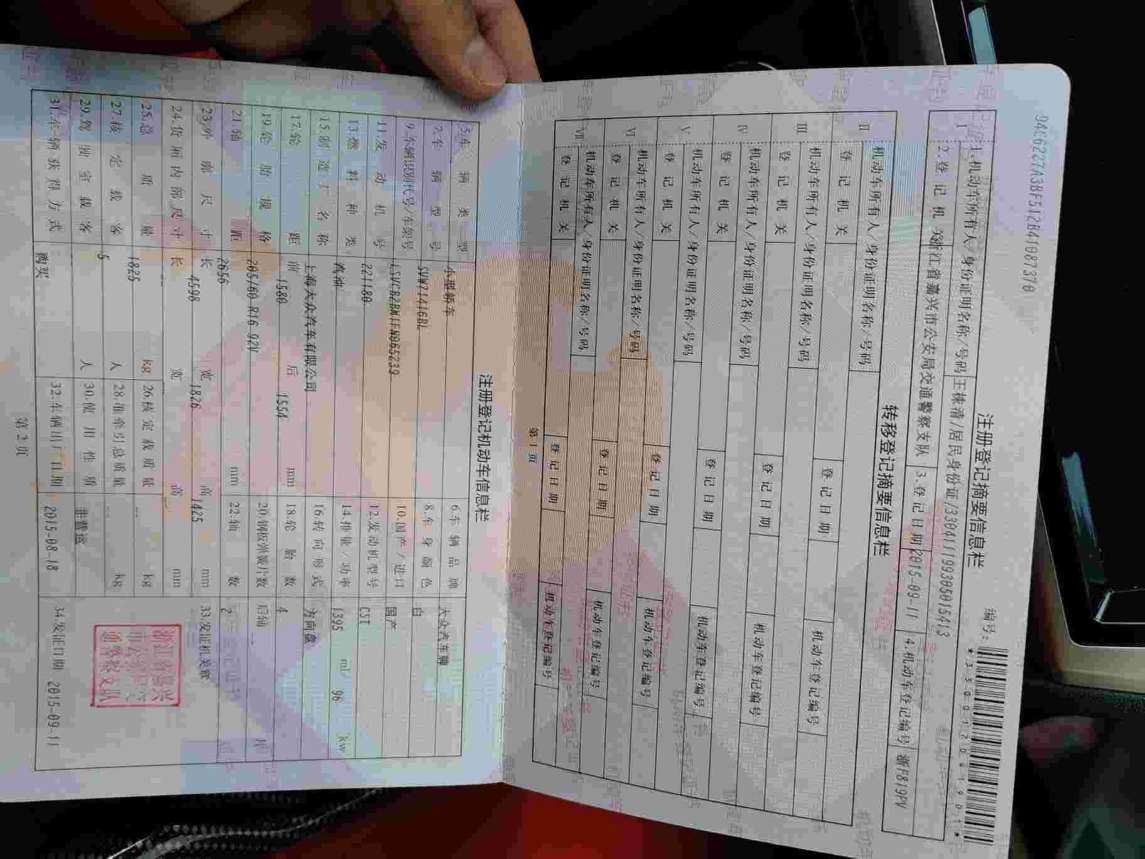 注册登记摘要信息栏
编号:
Ⅰ 1.机动车所有人/身份证明名称/号码 王棣清/居民身份证/330411199305015413
2.登记机关 浙江省嘉兴市公安局交通警察支队 3.登记日期 2015-09-11 4.机动车登记编号 浙F819PV
转移登记摘要信息栏
Ⅱ 机动车所有人/身份证明名称/号码
登记机关 登记日期 机动车登记编号
Ⅲ 机动车所有人/身份证明名称/号码
登记机关 登记日期 机动车登记编号
Ⅳ 机动车所有人/身份证明名称/号码
登记机关 登记日期 机动车登记编号
Ⅴ 机动车所有人/身份证明名称/号码
登记机关 登记日期 机动车登记编号
Ⅵ 机动车所有人/身份证明名称/号码
登记机关 登记日期 机动车登记编号
Ⅶ 机动车所有人/身份证明名称/号码
登记机关 登记日期 机动车登记编号
第1页
注册登记机动车信息栏
5.车辆类型 小型轿车 6.车辆品牌 大众汽车牌
7.车辆型号 SVW71416BL 8.车身颜色 白
9.车辆识别代号/车架号 10.国产/进口 国产
11.发动机号 221180 12.发动机型号 CST
13.燃料种类 汽油 14.排量/功率 1395 ml/ 96 kw
15.制造厂名称 上海大众汽车有限公司 16.转向形式 方向盘
17.轮距 前 1580 后 1554 mm 18.轮胎数 4
19.轮胎规格 205/60 R16 92V 20.钢板弹簧片数 后轴 -- 片
21.轴距 2656 mm 22.轴数 2
23.外廓尺寸 长 4598 宽 1826 高 1425 mm 33.发证机关章
24.货厢内部尺寸 长 宽 高 mm
25.总质量 1825 kg 26.核定载质量 -- kg
27.核定载客 5 人 28.准牵引总质量 -- kg
29.驾驶室载客 人 30.使用性质 非营运
31.车辆获得方式 购买 32.车辆出厂日期 2015-08-18 34.发证日期 2015-09-11
浙江省嘉兴
市公安局交
通警察支队
第2页